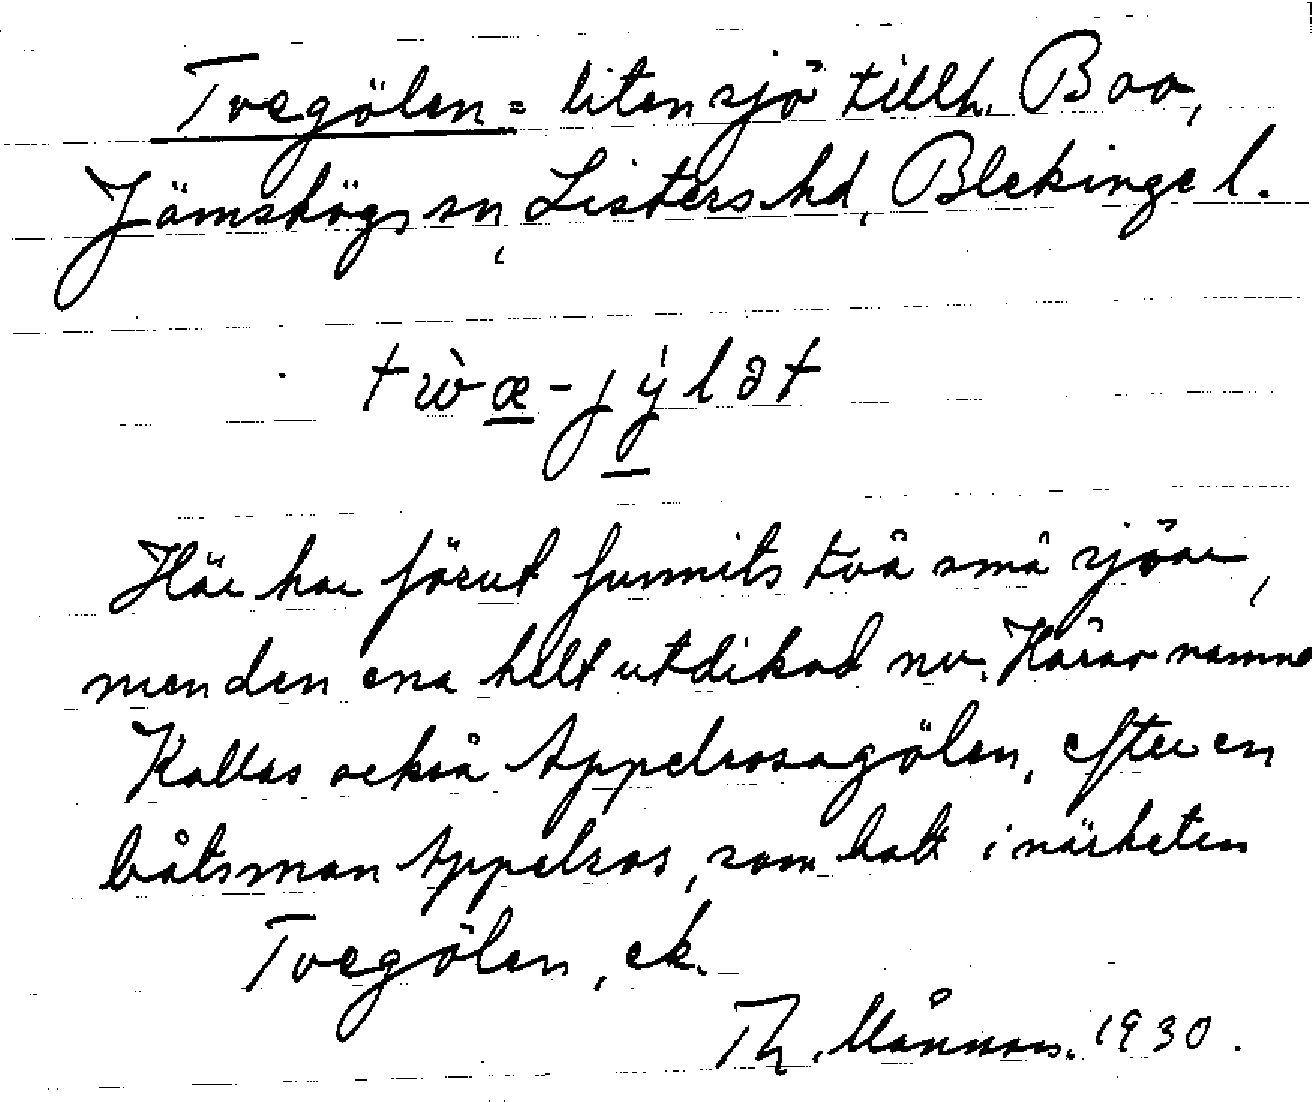 Tvegölen = liten sjö tillh. Boa,
Jämshögs sn, Listers hd, Blekinge l.
twæ̀-jýlət
Här har förut funnits två små sjöar,
men den ena helt utdikad nu. Härav namne
Kallas också Appelrosagölen, efter en
båtsman Appelros, som bott i närheten
Tvegölen, ek.
Th. Månsson. 1930.